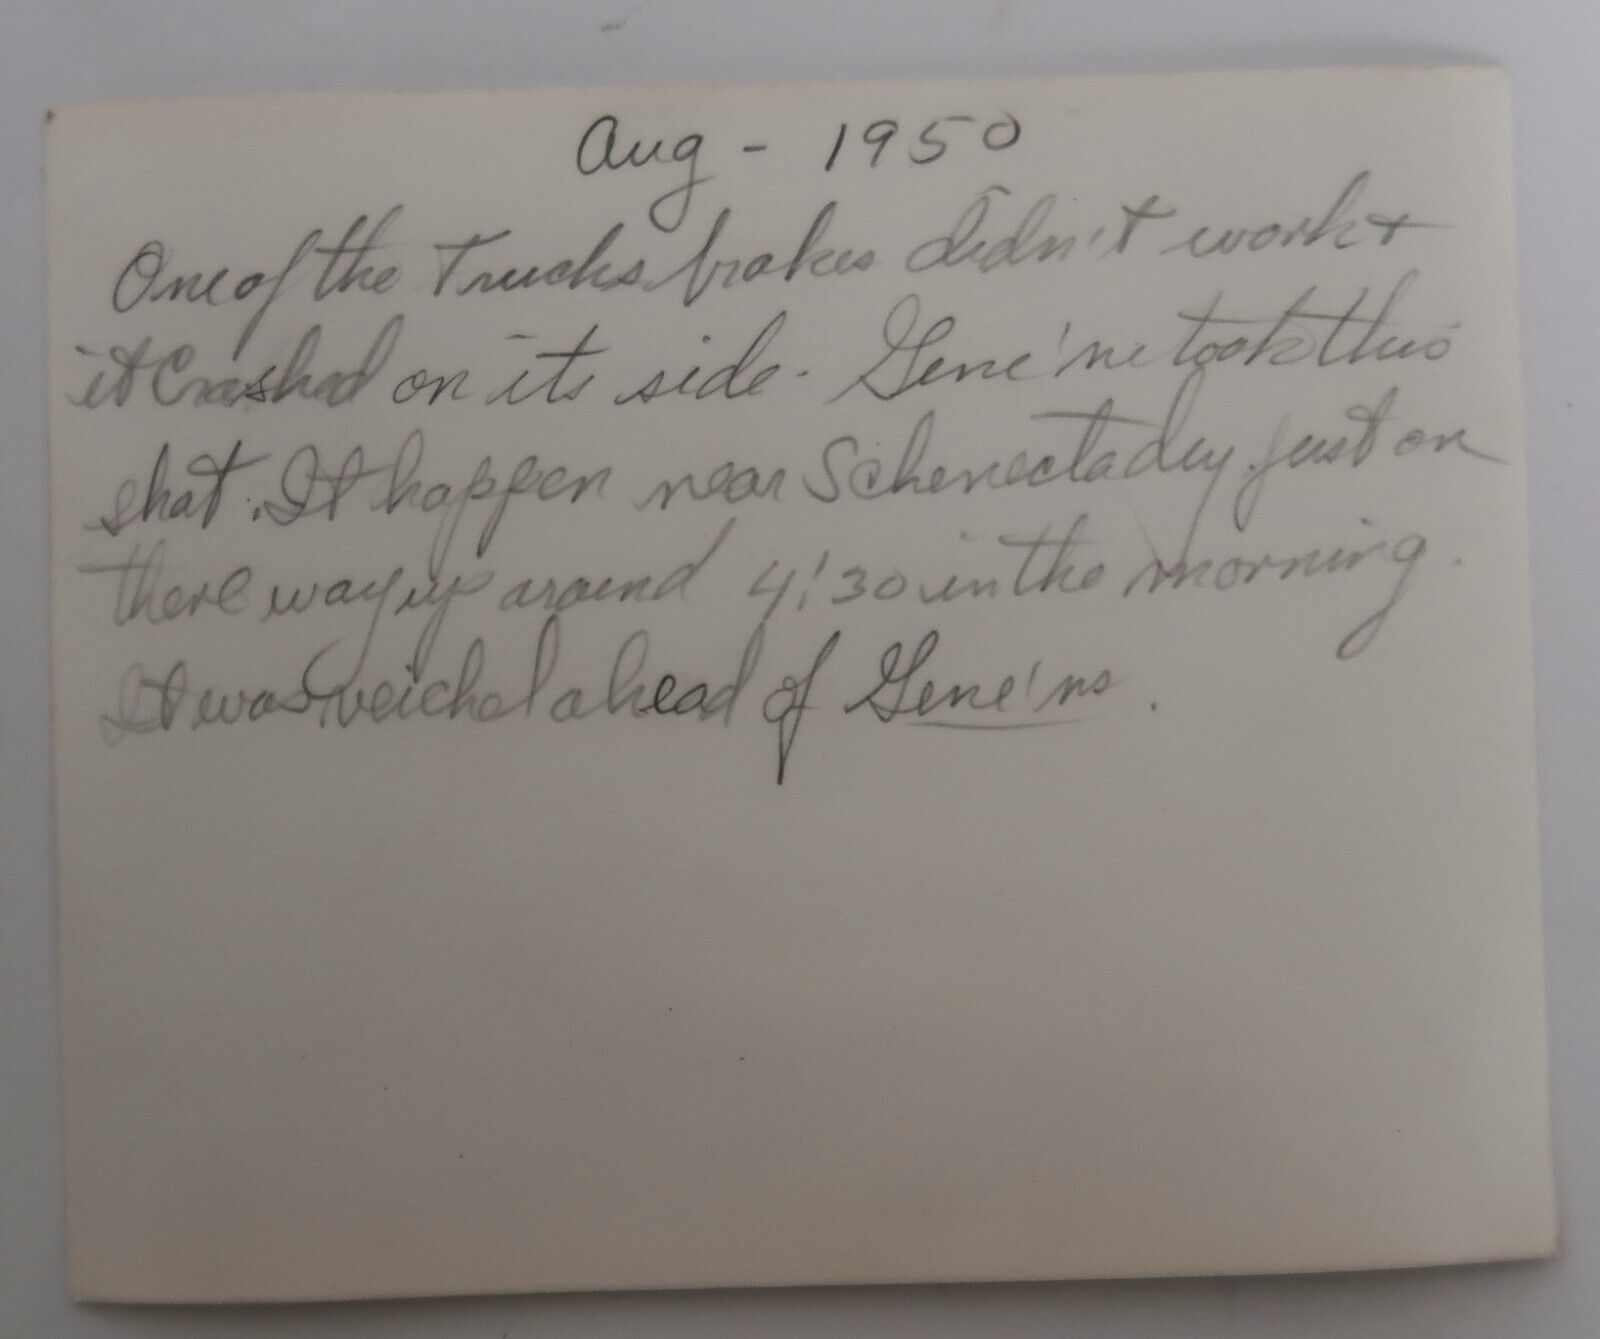 Aug - 1950
One of the Trucks brakes didn't work +
it Crashed on its side. Gene'ne took this
shot. It happen near Schenectady just on
there way up around 4:30 in the morning.
It was veichel ahead of Gene'ns.